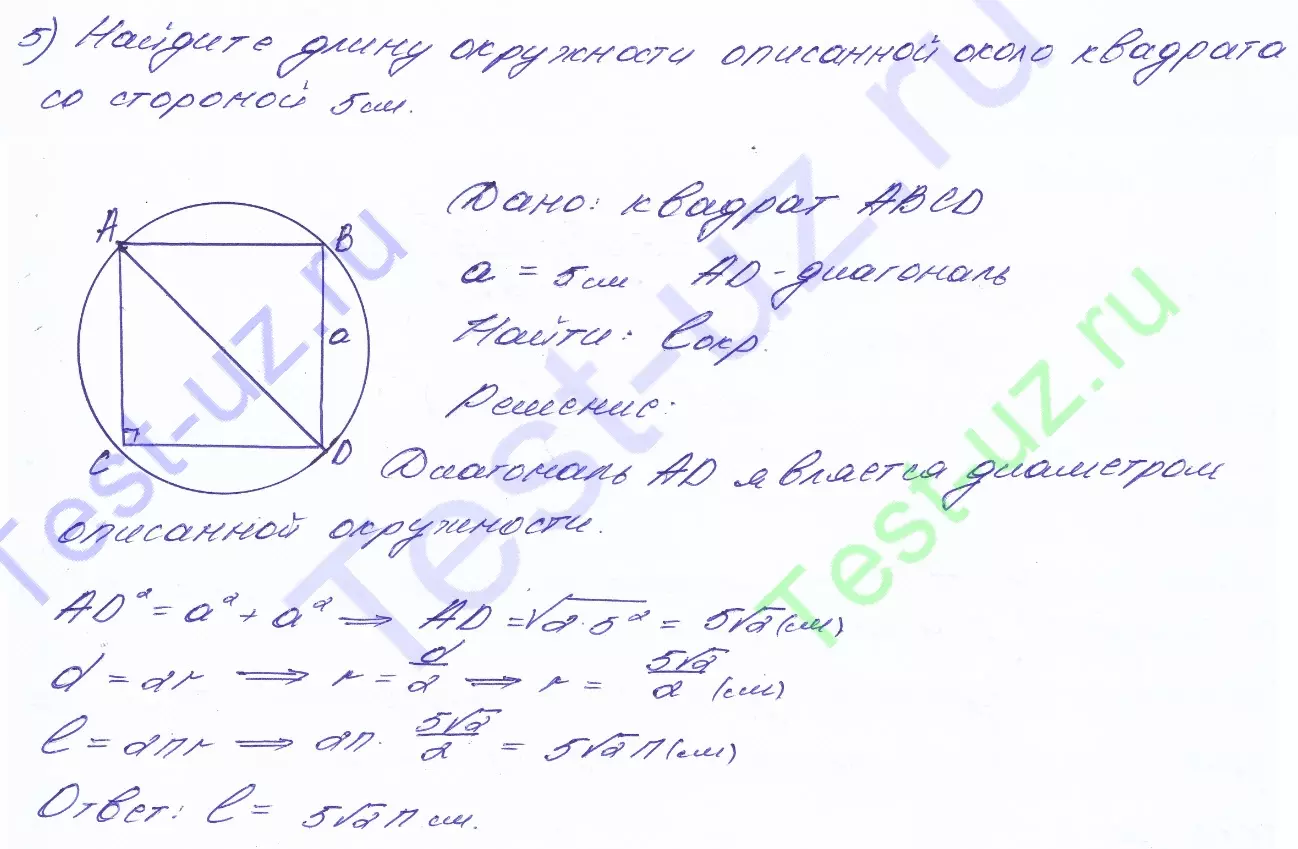 5) Найдите длину окружности описанной около квадрата
со стороной 5 см.
Дано: квадрат ABCD
a = 5 см AD - диагональ
Найти: lокр.
Решение:
A
B
a
C
D
Диагональ AD является диаметром
описанной окружности.
AD² = a² + a² ⟹ AD = √2·5² = 5√2 (см)
d = 2r ⟹ r = d/2 ⟹ r = 5√2/2 (см)
l = 2πr ⟹ 2π · 5√2/2 = 5√2 π (см)
Ответ: l = 5√2 π см.
Test-uz.ru
Test-uz.ru
Test-uz.ru